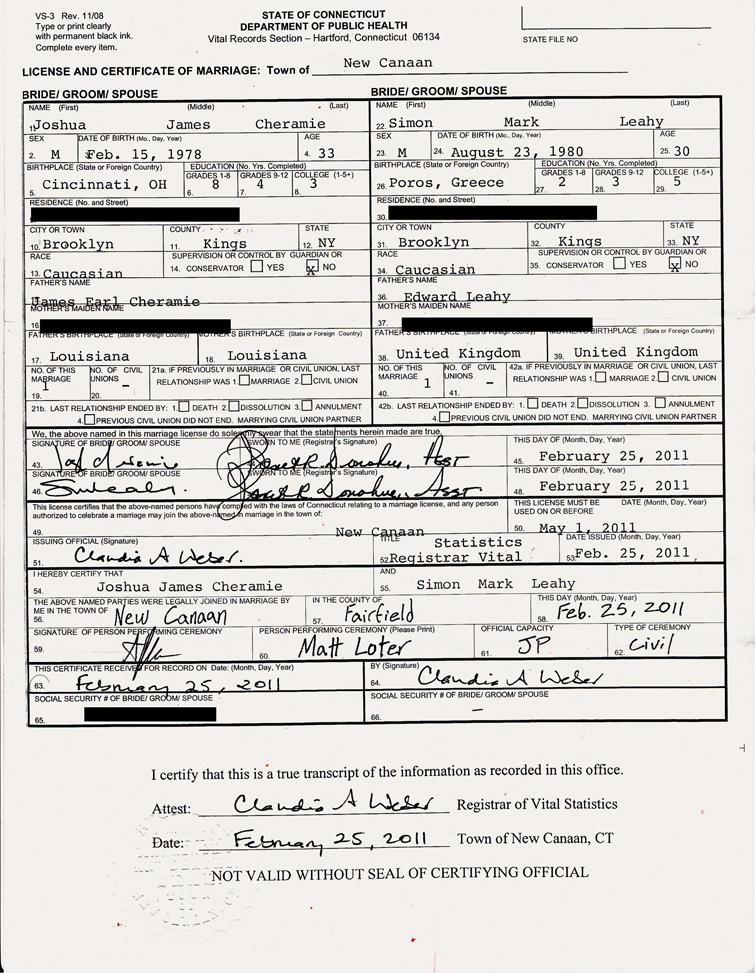 VS-3 Rev. 11/08
Type or print clearly
with permanent black ink.
Complete every item.
STATE OF CONNECTICUT
DEPARTMENT OF PUBLIC HEALTH
Vital Records Section – Hartford, Connecticut 06134
STATE FILE NO
LICENSE AND CERTIFICATE OF MARRIAGE: Town of New Canaan
BRIDE/ GROOM/ SPOUSE BRIDE/ GROOM/ SPOUSE
NAME (First) (Middle) (Last) NAME (First) (Middle) (Last)
1. Joshua James Cheramie 22. Simon Mark Leahy
SEX DATE OF BIRTH (Mo., Day, Year) AGE SEX DATE OF BIRTH (Mo., Day, Year) AGE
2. M 3. Feb. 15, 1978 4. 33 23. M 24. August 23, 1980 25. 30
BIRTHPLACE (State or Foreign Country) EDUCATION (No. Yrs. Completed) BIRTHPLACE (State or Foreign Country) EDUCATION (No. Yrs. Completed)
GRADES 1-8 GRADES 9-12 COLLEGE (1-5+) GRADES 1-8 GRADES 9-12 COLLEGE (1-5+)
5. Cincinnati, OH 6. 8 7. 4 8. 3 26. Poros, Greece 27. 2 28. 3 29. 5
RESIDENCE (No. and Street) RESIDENCE (No. and Street)
30.
CITY OR TOWN COUNTY STATE CITY OR TOWN COUNTY STATE
10. Brooklyn 11. Kings 12. NY 31. Brooklyn 32. Kings 33. NY
RACE SUPERVISION OR CONTROL BY GUARDIAN OR RACE SUPERVISION OR CONTROL BY GUARDIAN OR
13. Caucasian 14. CONSERVATOR YES X NO 34. Caucasian 35. CONSERVATOR YES X NO
FATHER'S NAME FATHER'S NAME
James Earl Cheramie 36. Edward Leahy
MOTHER'S MAIDEN NAME MOTHER'S MAIDEN NAME
16. 37.
FATHER'S BIRTHPLACE (State or Foreign Country) MOTHER'S BIRTHPLACE (State or Foreign Country) FATHER'S BIRTHPLACE (State or Foreign Country) MOTHER'S BIRTHPLACE (State or Foreign Country)
17. Louisiana 18. Louisiana 38. United Kingdom 39. United Kingdom
NO. OF THIS MARRIAGE NO. OF CIVIL UNIONS 21a. IF PREVIOUSLY IN MARRIAGE OR CIVIL UNION, LAST NO. OF THIS MARRIAGE NO. OF CIVIL UNIONS 42a. IF PREVIOUSLY IN MARRIAGE OR CIVIL UNION, LAST
RELATIONSHIP WAS 1. MARRIAGE 2. CIVIL UNION RELATIONSHIP WAS 1. MARRIAGE 2. CIVIL UNION
19. 1 20. – 40. 1 41. –
21b. LAST RELATIONSHIP ENDED BY: 1. DEATH 2. DISSOLUTION 3. ANNULMENT 42b. LAST RELATIONSHIP ENDED BY: 1. DEATH 2. DISSOLUTION 3. ANNULMENT
4. PREVIOUS CIVIL UNION DID NOT END. MARRYING CIVIL UNION PARTNER 4. PREVIOUS CIVIL UNION DID NOT END. MARRYING CIVIL UNION PARTNER
We, the above named in this marriage license do solemnly swear that the statements herein made are true.
SIGNATURE OF BRIDE/ GROOM/ SPOUSE SWORN TO ME (Registrar's Signature) THIS DAY OF (Month, Day, Year)
43. Janet R Donohue, Asst 45. February 25, 2011
SIGNATURE OF BRIDE/ GROOM/ SPOUSE SWORN TO ME (Registrar's Signature) THIS DAY OF (Month, Day, Year)
46. SmLeahy. Janet R Donohue, Asst. 48. February 25, 2011
This license certifies that the above-named persons have complied with the laws of Connecticut relating to a marriage license, and any person THIS LICENSE MUST BE DATE (Month, Day, Year)
authorized to celebrate a marriage may join the above-named in marriage in the town of: USED ON OR BEFORE
49. New Canaan 50. May 1, 2011
ISSUING OFFICIAL (Signature) TITLE Statistics DATE ISSUED (Month, Day, Year)
51. Claudia A Weber. 52. Registrar Vital 53. Feb. 25, 2011
I HEREBY CERTIFY THAT AND
54. Joshua James Cheramie 55. Simon Mark Leahy
THE ABOVE NAMED PARTIES WERE LEGALLY JOINED IN MARRIAGE BY IN THE COUNTY OF THIS DAY (Month, Day, Year)
ME IN THE TOWN OF
56. New Canaan 57. Fairfield 58. Feb. 25, 2011
SIGNATURE OF PERSON PERFORMING CEREMONY PERSON PERFORMING CEREMONY (Please Print) OFFICIAL CAPACITY TYPE OF CEREMONY
59. 60. Matt Loter 61. JP 62. Civil
THIS CERTIFICATE RECEIVED FOR RECORD ON Date: (Month, Day, Year) BY (Signature)
63. February 25, 2011 64. Claudia A Weber
SOCIAL SECURITY # OF BRIDE/ GROOM/ SPOUSE SOCIAL SECURITY # OF BRIDE/ GROOM/ SPOUSE
65. 66. –
I certify that this is a true transcript of the information as recorded in this office.
Attest: Claudia A Weber Registrar of Vital Statistics
Date: February 25, 2011 Town of New Canaan, CT
NOT VALID WITHOUT SEAL OF CERTIFYING OFFICIAL